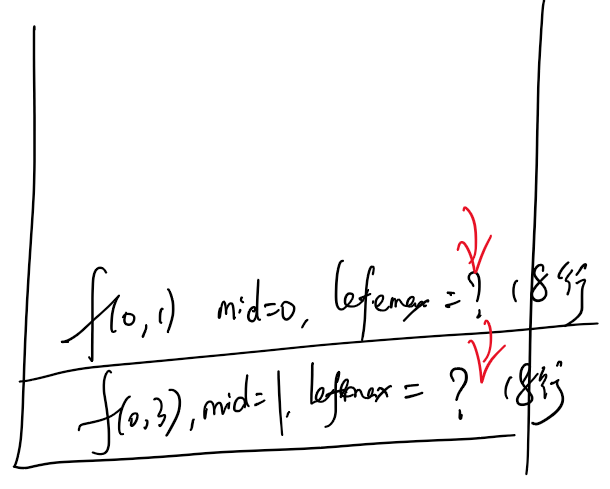 f(0,1) mid=0, leftmax=? (8行)
f(0,3), mid=1, leftmax=? (8行)